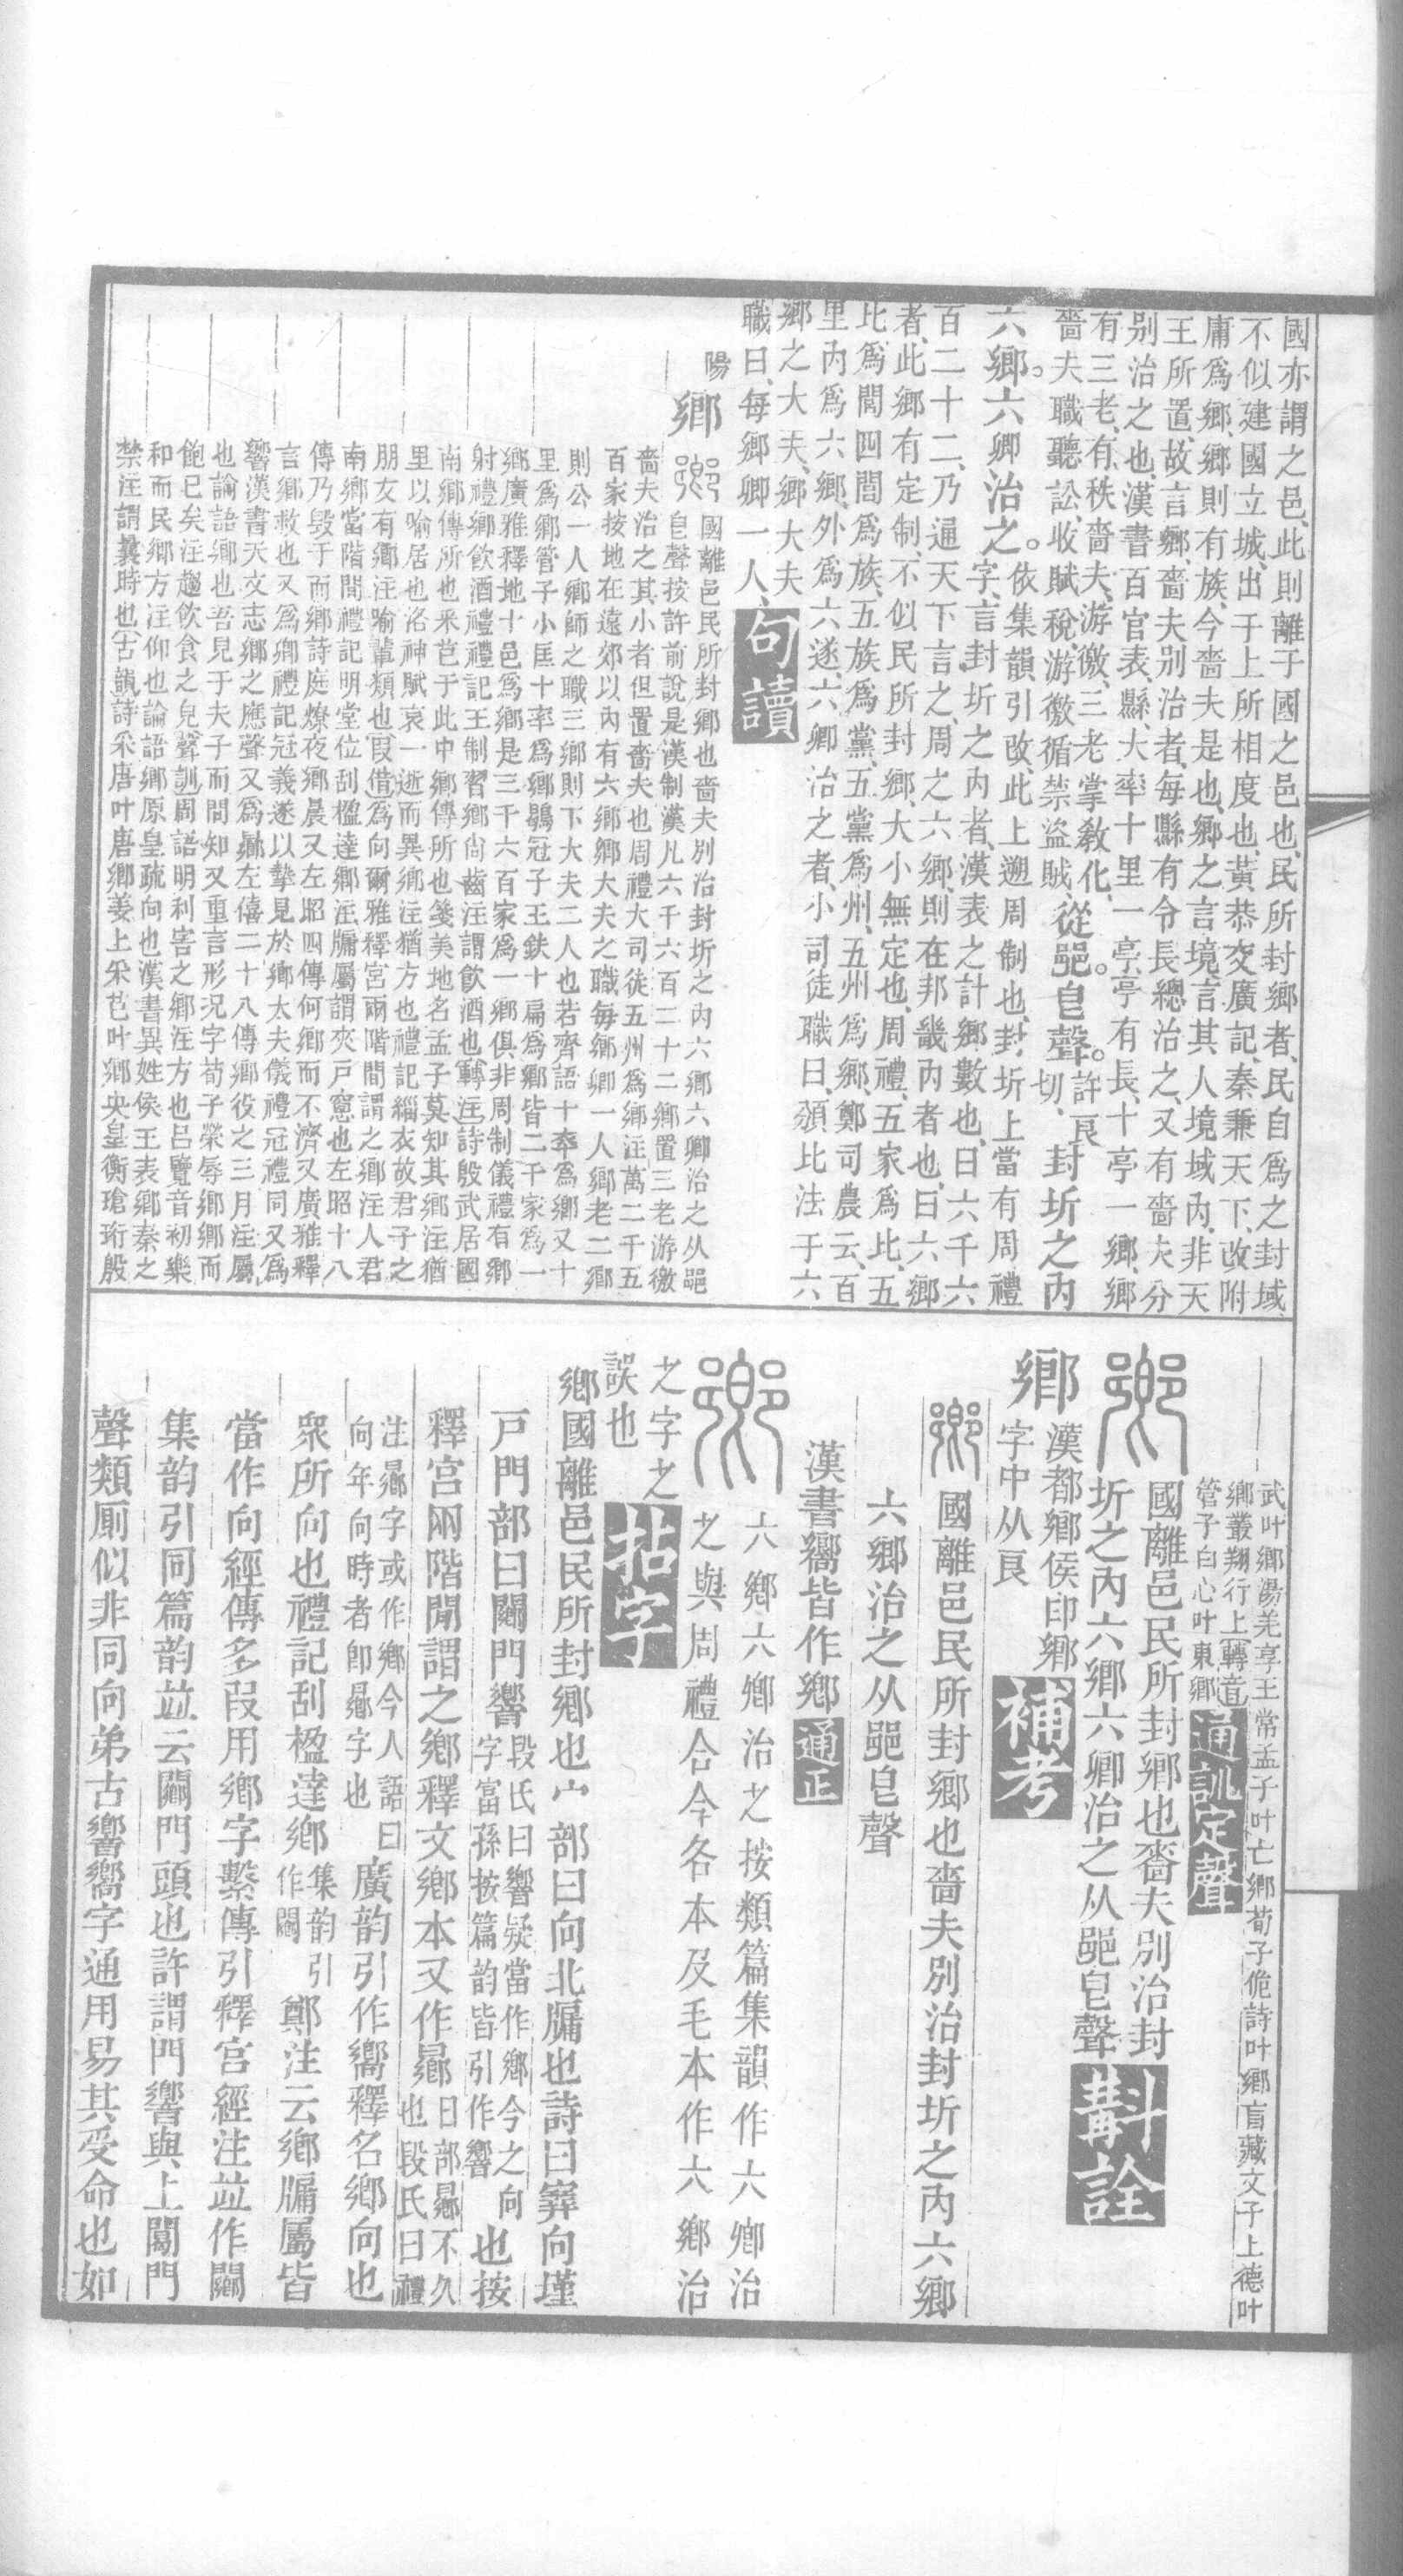 國亦謂之邑、此則離于國之邑也、民所封鄉者、民自爲之封域
不似建國立城、出于上所相度也、黃恭交廣記、秦兼天下、改附
庸爲鄉、鄉則有族、今嗇夫是也、鄉之言境、言其人境域內、非天
王所置、故言鄉、嗇夫別治者、每縣有令長總治之、又有嗇夫分
別治之也、漢書百官表、縣、大率十里一亭、亭有長、十亭一鄉、鄉
有三老、有秩嗇夫、游徼、三老掌敎化、
嗇夫職聽訟、收賦稅、游徼循禁盜賊、從𨛜。皀聲。許良切、封圻之內
六鄉。六卿治之。依集韻引改、此上遡周制也、封圻上當有周禮
字、言封圻之內者、漢表之計鄉數也、曰六千六
百二十二、乃通天下言之、周之六鄉、則在邦畿內者也、曰六鄉
者、此鄉有定制、不似民所封鄉、大小無定也、周禮、五家爲比、五
比爲閭、四閭爲族、五族爲黨、五黨爲州、五州爲鄉、鄭司農云、百
里內爲六鄉、外爲六遂、六卿治之者、小司徒職曰、頒比法于六
鄉之大夫、鄉大夫
職曰、每鄉卿一人、句讀
陽
鄉 國離邑民所封鄉也嗇夫別治封圻之內六鄉六卿治之从𨛜
皀聲按許前說是漢制漢凡六千六百二十二鄉置三老游徼
嗇夫治之其小者但置嗇夫也周禮大司徒五州爲鄉注萬二千五
百家按地在遠郊以內有六鄉鄉大夫之職每鄉卿一人鄉老二鄉
則公一人鄉師之職三鄉則下大夫二人也若齊語十率爲鄉又十
里爲鄉管子小匡十率爲鄉鶡冠子王鈇十扁爲鄉皆二千家爲一
鄉廣雅釋地十邑爲鄉是三千六百家爲一鄉俱非周制儀禮有鄉
射禮鄉飲酒禮禮記王制習鄉尙齒注謂飲酒也轉注詩殷武居國
南鄉傳所也采芑于此中鄉傳所也箋美地名孟子莫知其鄉注猶
里以喻居也洛神賦哀一逝而異鄉注猶方也禮記緇衣故君子之
朋友有鄉注喻輩類也叚借爲向爾雅釋宮兩階間謂之鄉注人君
南鄉當階間禮記明堂位刮楹達鄉注牖屬謂夾戶窻也左昭十八
傳乃毀于而鄉詩庭燎夜鄉晨又左昭四傳何鄉而不濟又廣雅釋
言鄉救也又爲卿禮記冠義遂以摯見於鄉大夫儀禮冠禮同又爲
響漢書天文志鄉之應聲又爲曏左僖二十八傳鄉役之三月注屬
也論語鄉也吾見于夫子而間知又重言形況字荀子榮辱鄉鄉而
飽已矣注趨飲食之皃聲訓周語明利害之鄉注方也呂覽音初樂
和而民鄉方注仰也論語鄉原皇疏向也漢書異姓侯王表鄉秦之
禁注謂曩時也古韻詩采唐叶唐鄉姜上采芑叶鄉央皇衡瑲珩殷
武叶鄉湯羌享王常孟子叶亡鄉荀子佹詩叶鄉盲藏文子上德叶
鄉叢翔行上轉音
管子白心叶東鄉通訓定聲
國離邑民所封鄉也嗇夫別治封
圻之內六鄉六卿治之从𨛜皀聲斠詮
鄉 漢都鄉侯印鄉
字中从良 補考
國離邑民所封鄉也嗇夫別治封圻之內六鄉
六鄉治之从𨛜皀聲
漢書嚮皆作鄉通正
六鄉六鄉治之按類篇集韻作六鄉治
之與周禮合今各本及毛本作六鄉治
之字之
誤也拈字
鄉國離邑民所封鄉也宀部曰向北牖也詩曰穹向墐
戶門部曰闢門響段氏曰響疑當作鄉今之向字富孫按篇韵皆引作響也按
釋宮兩階閒謂之鄉釋文鄉本又作曏日部曏不久也段氏曰禮
注曏字或作鄉今人語曰向年向時者卽曏字也廣韵引作嚮釋名鄉向也
衆所向也禮記刮楹達鄉集韵引作闢鄭注云鄉牖屬皆
當作向經傳多叚用鄉字繫傳引釋宮經注竝作闢
集韵引同篇韵竝云闢門頭也許謂門響與上闢門
聲類厠似非同向弟古響嚮字通用易其受命也如